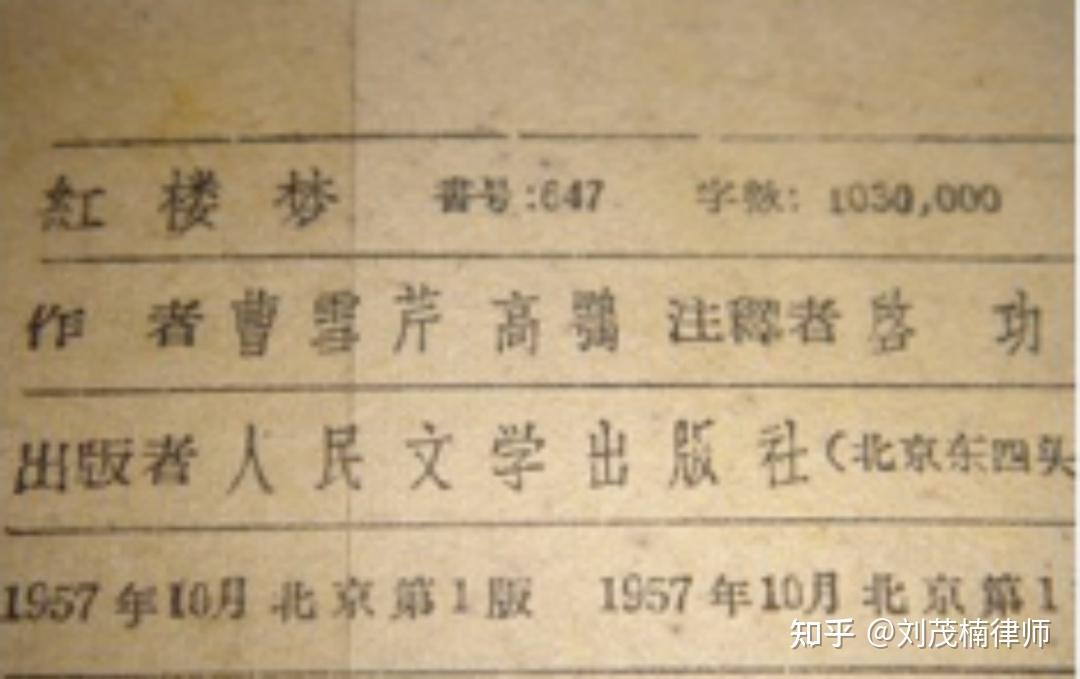 紅楼梦 書号:647 字数: 1030,000
作者曹雪芹 高鶚 注釋者 启功
出版者人民文学出版社(北京东四头
1957年10月北京第1版 1957年10月北京第1
知乎 @刘茂楠律师